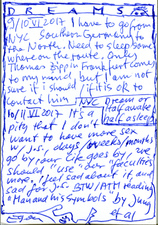 DREAMS
9/10 VI 2017 I have to go from
NYC Southern Germany to
the North. Need to sleep some
where on the route. Only
Thomas Zipp in Frankfurt comes
to my mind, but I am not
sure if I should / if it is OK to
contact him NYC Dream or
half awake
10/11 VI 2017 It's a half asleep
pity that I don't
want to have more sex
w/ Jsi., days/weeks/months
go by, our life goes by, we
should "use" our faculties
more, I feel sad about it and
sad for Jsi. BTW/ATM reading
"Man and his Symbols" by Jung
et al